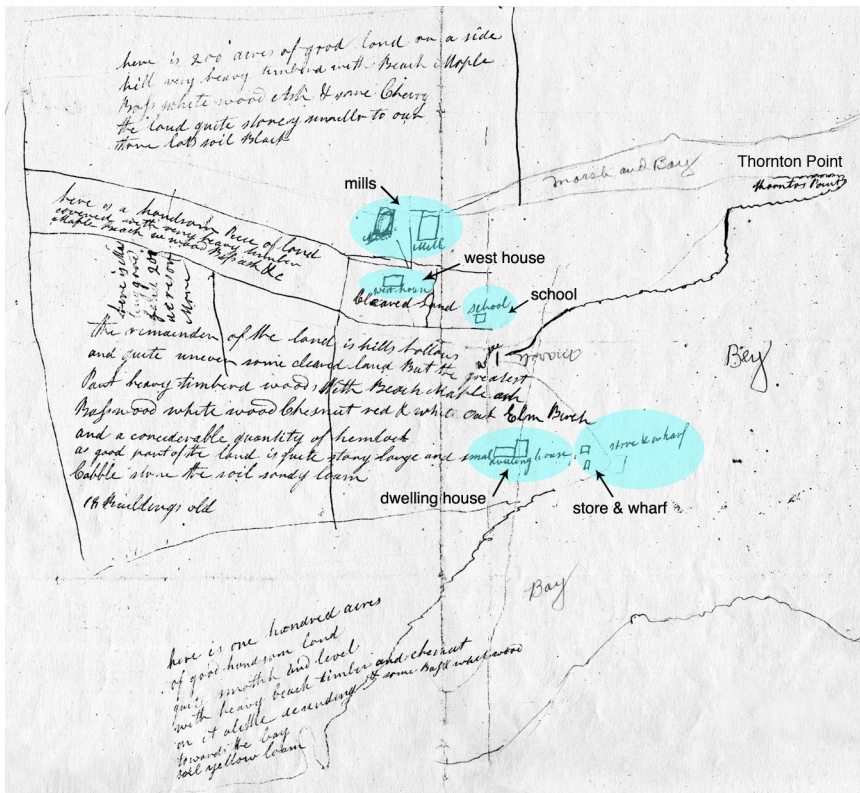 here is 200 acres of good land on a side
hill very heavy timberd with Beach Maple
Bass white wood Ash & some Cherry
the land quite stoney similar to our
stone lots soil Black
Marsh and Bay
Thornton Point
Thornton Point
mills
Mill
here is a handsom Piece of land
covered with very heavy timber
Maple Beach
west house
west house
Cleared land
school
school
here is the
200
acres or
More
the remainder of the land is hills hollows
and quite uneven some cleared land But the greatest
Part heavy timberd woods With Beach Maple ash
Basswood white wood Chesnut red & white oak Elm Birch
and a conciderable quantity of hemlock
as good part of the land is quite stony large and small
Cobble stone the soil sandy loam
Buildings old
Bey
dwelling house
store & wharf
dwelling house
store & wharf
Bay
here is one hundred acres
of good handsom land
quite smothh and level
with heavy beach timber and chesnut
on it alittle decending & some Bass whit wood
towards the bay
soil yellow loam